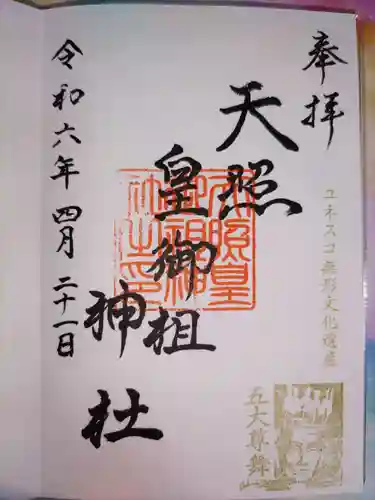 奉拝
ユネスコ無形文化遺産
五大尊舞
天照
皇御祖
神社
令和六年四月二十一日